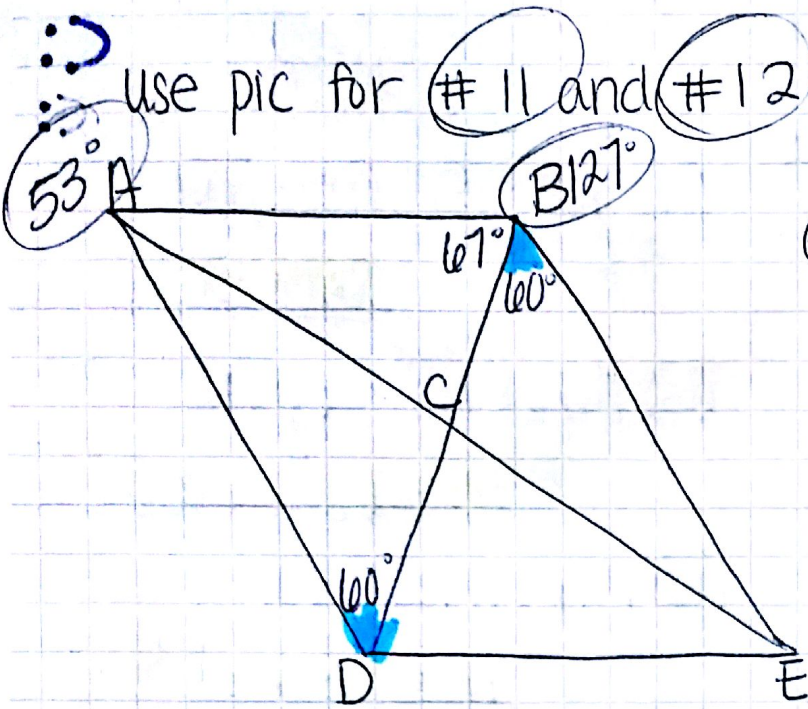 use pic for #11 and #12
53° A
B127°
67°
60°
C
60°
D
E